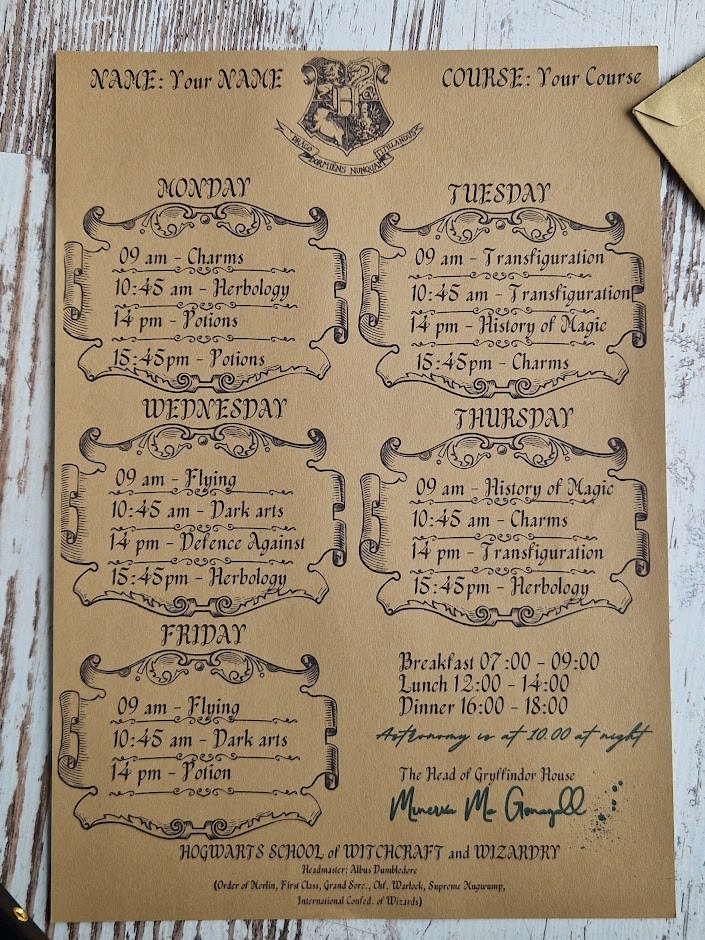 NAME: Your NAME
COURSE: Your Course
DRACO DORMIENS NUNQUAM TITILLANDUS
MONDAY
09 am - Charms
10:45 am - Herbology
14 pm - Potions
15:45pm - Potions
TUESDAY
09 am - Transfiguration
10:45 am - Transfiguration
14 pm - History of Magic
15:45pm - Charms
WEDNESDAY
09 am - Flying
10:45 am - Dark arts
14 pm - Defence Against
15:45pm - Herbology
THURSDAY
09 am - History of Magic
10:45 am - Charms
14 pm - Transfiguration
15:45pm - Herbology
FRIDAY
09 am - Flying
10:45 am - Dark arts
14 pm - Potion
Breakfast 07:00 - 09:00
Lunch 12:00 - 14:00
Dinner 16:00 - 18:00
Astronomy is at 10.00 at night
The Head of Gryffindor House
Minerva Mc Gonagall
HOGWARTS SCHOOL of WITCHCRAFT and WIZARDRY
Headmaster: Albus Dumbledore
(Order of Merlin, First Class, Grand Sorc., Chf. Warlock, Supreme Mugwump,
International Confed. of Wizards)